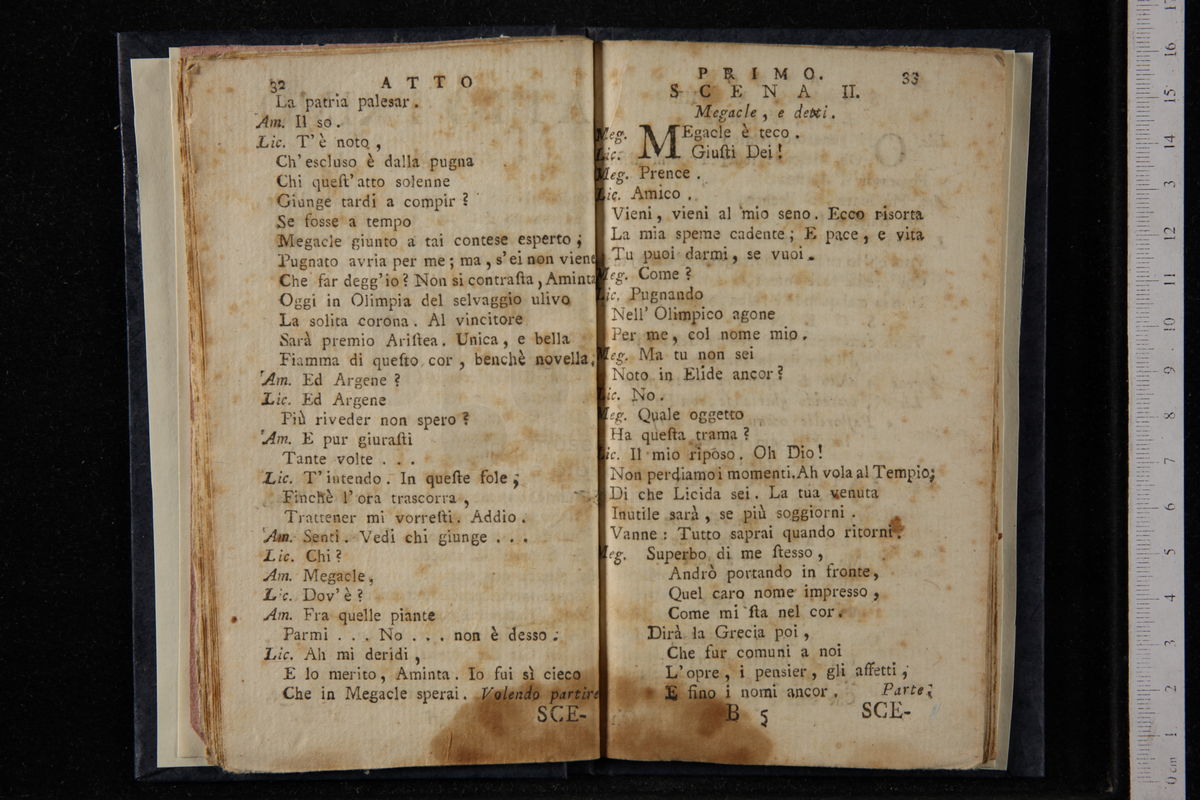 32 ATTO
La patria palesar.
Am. Il so.
Lic. T'è noto,
Ch'escluso è dalla pugna
Chi queſt'atto solenne
Giunge tardi a compir?
Se fosse a tempo
Megacle giunto a tai contese esperto;
Pugnato avria per me; ma, s'ei non viene
Che far degg'io? Non si contraſta, Aminta
Oggi in Olimpia del selvaggio ulivo
La solita corona. Al vincitore
Sarà premio Ariſtea. Unica, e bella
Fiamma di queſto cor, benchè novella.
Am. Ed Argene?
Lic. Ed Argene
Più riveder non spero?
Am. E pur giuraſti
Tante volte ...
Lic. T'intendo. In queſte fole;
Finchè l'ora trascorra,
Trattener mi vorreſti. Addio.
Am. Senti. Vedi chi giunge ...
Lic. Chi?
Am. Megacle,
Lic. Dov'è?
Am. Fra quelle piante
Parmi ... No ... non è desso.
Lic. Ah mi deridi,
E lo merito, Aminta. Io fui sì cieco
Che in Megacle sperai. Volendo partire
SCE-
PRIMO. 33
SCENA II.
Megacle, e detti.
Meg. MEgacle è teco.
Lic. Giuſti Dei!
Meg. Prence.
Lic. Amico.
Vieni, vieni al mio seno. Ecco risorta
La mia speme cadente; E pace, e vita
Tu puoi darmi, se vuoi.
Meg. Come?
Lic. Pugnando
Nell'Olimpico agone
Per me, col nome mio.
Meg. Ma tu non sei
Noto in Elide ancor?
Lic. No.
Meg. Quale oggetto
Ha queſta trama?
Lic. Il mio riposo. Oh Dio!
Non perdiamo i momenti. Ah vola al Tempio;
Di che Licida sei. La tua venuta
Inutile sarà, se più soggiorni.
Vanne: Tutto saprai quando ritorni.
Meg. Superbo di me ſtesso,
Andrò portando in fronte,
Quel caro nome impresso,
Come mi ſta nel cor.
Dirà la Grecia poi,
Che fur comuni a noi
L'opre, i pensier, gli affetti,
E fino i nomi ancor. Parte;
B 5 SCE-
17
16
15
14
13
12
11
10
9
8
7
6
5
4
3
2
1
0 cm